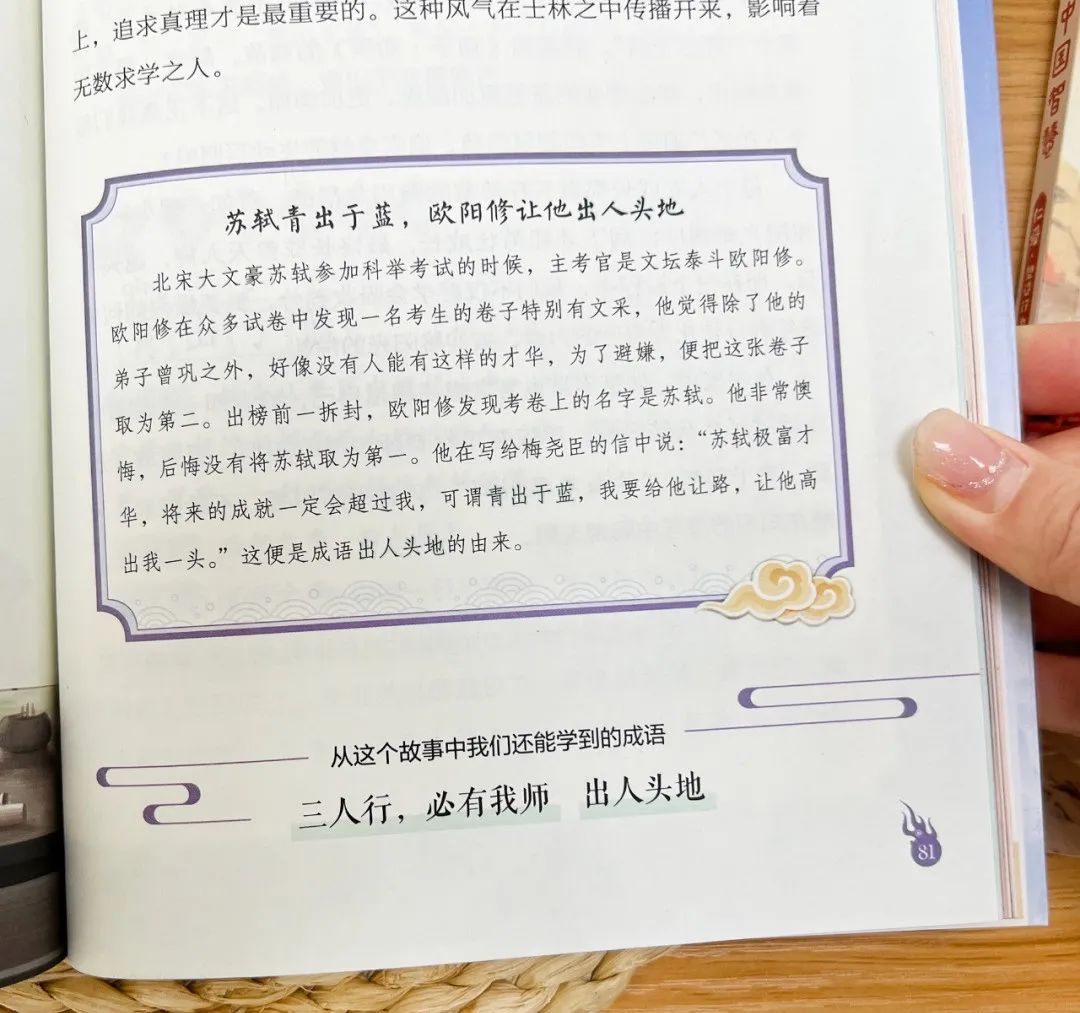 上，追求真理才是最重要的。这种风气在士林之中传播开来，影响着
无数求学之人。
苏轼青出于蓝，欧阳修让他出人头地
北宋大文豪苏轼参加科举考试的时候，主考官是文坛泰斗欧阳修。
欧阳修在众多试卷中发现一名考生的卷子特别有文采，他觉得除了他的
弟子曾巩之外，好像没有人能有这样的才华，为了避嫌，便把这张卷子
取为第二。出榜前一拆封，欧阳修发现考卷上的名字是苏轼。他非常懊
悔，后悔没有将苏轼取为第一。他在写给梅尧臣的信中说：“苏轼极富才
华，将来的成就一定会超过我，可谓青出于蓝，我要给他让路，让他高
出我一头。”这便是成语出人头地的由来。
从这个故事中我们还能学到的成语
三人行，必有我师 出人头地
81
中国智慧